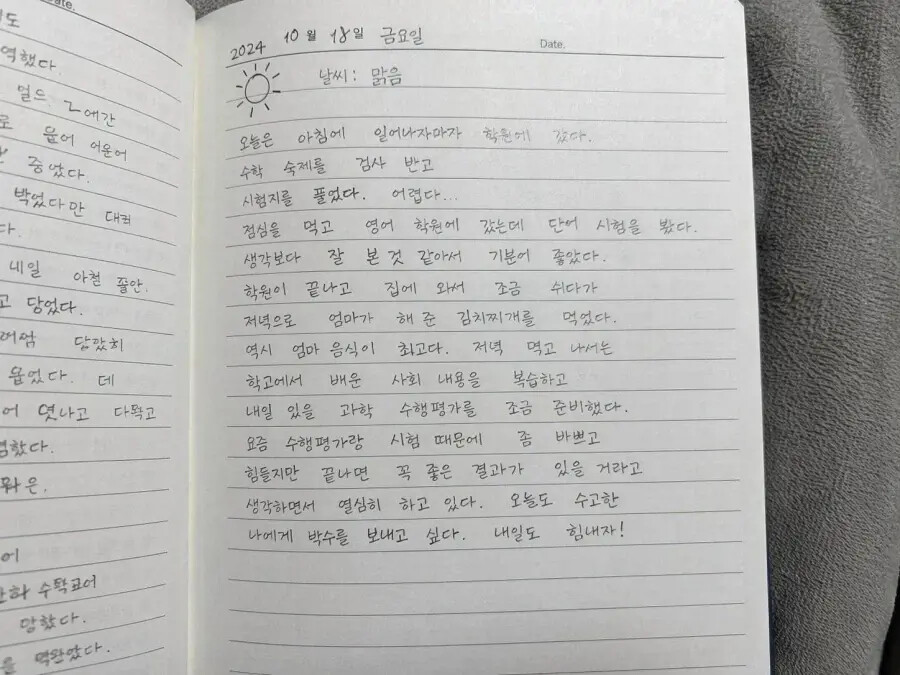 Date.
역했다.
박었다만
내일
담았희
다
망했다.
2024 10월 18일 금요일
Date.
날씨: 맑음
오늘은 아침에 일어나자마자 학원에 갔다.
수학 숙제를 검사 받고
시험지를 풀었다. 어렵다...
점심을 먹고 영어 학원에 갔는데 단어 시험을 봤다.
생각보다 잘 본 것 같아서 기분이 좋았다.
학원이 끝나고 집에 와서 조금 쉬다가
저녁으로 엄마가 해 준 김치찌개를 먹었다.
역시 엄마 음식이 최고다. 저녁 먹고 나서는
학교에서 배운 사회 내용을 복습하고
내일 있을 과학 수행평가를 조금 준비했다.
요즘 수행평가랑 시험 때문에 좀 바쁘고
힘들지만 끝나면 꼭 좋은 결과가 있을 거라고
생각하면서 열심히 하고 있다. 오늘도 수고한
나에게 박수를 보내고 싶다. 내일도 힘내자!